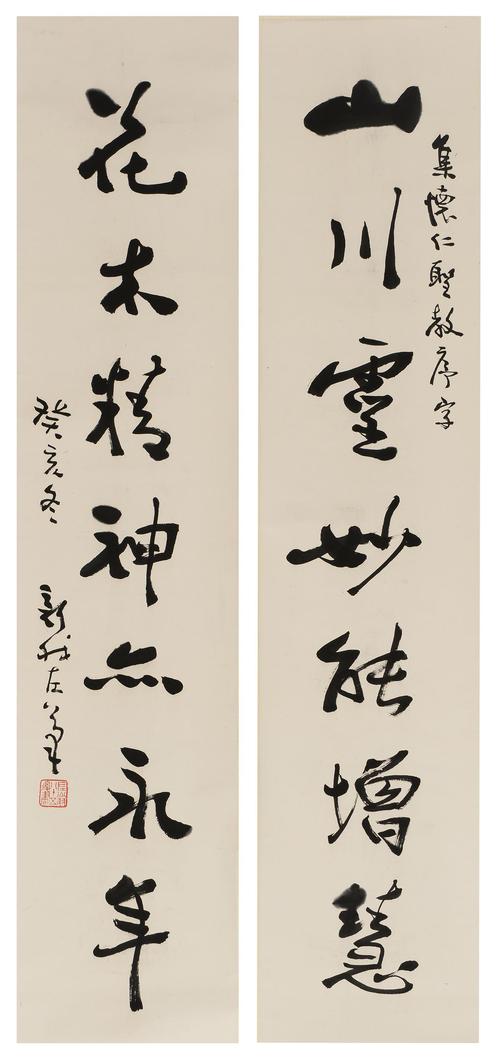 集懷仁聖教序字
山川靈妙能增慧
花木精神亦永年
癸亥冬 新我左筆